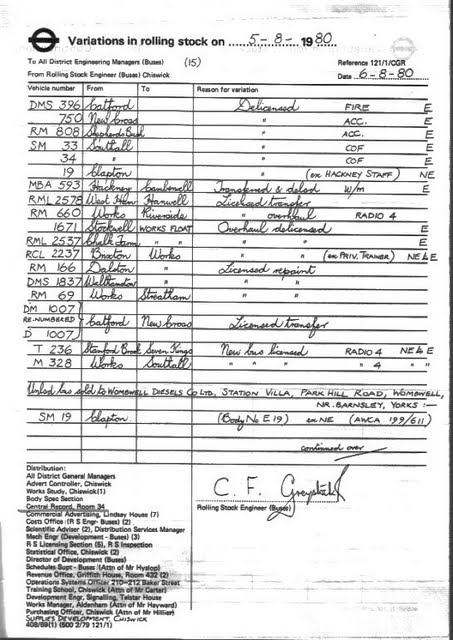 Variations in rolling stock on 5-8-1980
To All District Engineering Managers (Buses) (15) Reference 121/1/CGR
From Rolling Stock Engineer (Buses) Chiswick Date 6-8-80
Vehicle number From To Reason for variation
DMS 396 Catford Delicensed FIRE E
750 New Cross " ACC. E
RM 808 Shepherds Bush " ACC. E
SM 33 Southall " COF E
34 " " COF E
19 Clapton " (ex HACKNEY STAFF) NE
MBA 593 Hackney Camberwell Transferred & delcd W/m E
RML 2578 West Ham Hanwell Licensed transfer
RM 660 Works Riverside " overhaul RADIO 4
1671 Stockwell WORKS FLOAT Overhaul delicensed E
RML 2537 Chalk Farm " " " " E
RCL 2237 Brixton Works " " (ex PRIV. TRAINER) NE & E
RM 166 Dalston " Licensed repaint
DMS 1837 Walthamstow " " "
RM 69 Works Streatham " "
DM 1007
RE-NUMBERED Catford New Cross Licensed transfer
D 1007
T 236 Stamford Brook Seven Kings New bus licensed RADIO 4 NE & E
M 328 Works Southall " " " " 4 " "
Unlcd bus sold to WOMBWELL DIESELS CO LTD, STATION VILLA, PARK HILL ROAD, WOMBWELL,
NR. BARNSLEY, YORKS :—
SM 19 Clapton. (Body No E 19) ex NE (AWCA 199/611)
continued over
Distribution:
All District General Managers
Advert Controller, Chiswick
Works Study, Chiswick(1)
Body Spec Section
Central Record, Room 34
Commercial Advertising, Lindsay House (7)
Costs Office (R S Engr- Buses) (2)
Scientific Adviser (2), Distribution Services Manager
Mech Engr (Development - Buses) (3)
R S Licensing Section (5), R S Inspection
Statistical Office, Chiswick (2)
Director of Development (Buses)
Schedules Supt - Buses (Attn of Mr Hyslop)
Revenue Office, Griffith House, Room 432 (2)
Operations Systems Officer 210-212 Baker Street
Training School, Chiswick (Attn of Mr Carter)
Development Engr, Signalling, Telstar House
Works Manager, Aldenham (Attn of Mr Hayward)
Purchasing Officer, Chiswick (Attn of Mr Hillier)
SUPPLIES DEVELOPMENT, CHISWICK
408/69(1) (500 2/79 121/1)
C. F.
Rolling Stock Engineer (Buses)